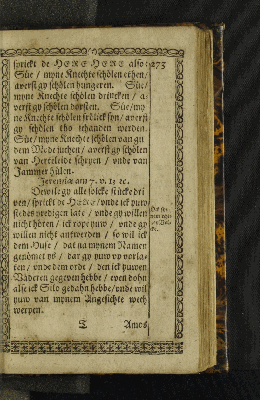 sprickt de HERE HERE also: 273
Süe / myne Knechte schölen ethen /
averst gy schölen hungeren. Süe /
myne Knechte schölen drincken / a-
verst gy schölen dorsten. Süe / my-
ne Knechte schölen frölick syn / averst
gy schölen tho schanden werden.
Süe / myne Knechte schölen van gu-
dem Mode juchen / averst gy schölen
van Herteleide schryen / unde van
Jammer hülen.
Jeremiæ am 7. v. 13 &c.
Dewile gy alle solcke stücke dri-
ven / sprickt de HERE / unde ick yuw
stedes predigen late / unde gy willen
nicht hören / ick rope yuw / unde gy
willen nicht antwerden / so wil ick
dem Huse / dat na mynem Namen
genömet ys / dar gy yuw up vorla-
ten / unde dem orde / den ick yuwen
Väderen gegeven hebbe / even dohn
alse ick Silo gedahn hebbe / unde wil
yuw van mynem Angesichte wech
werpen.
T Amos